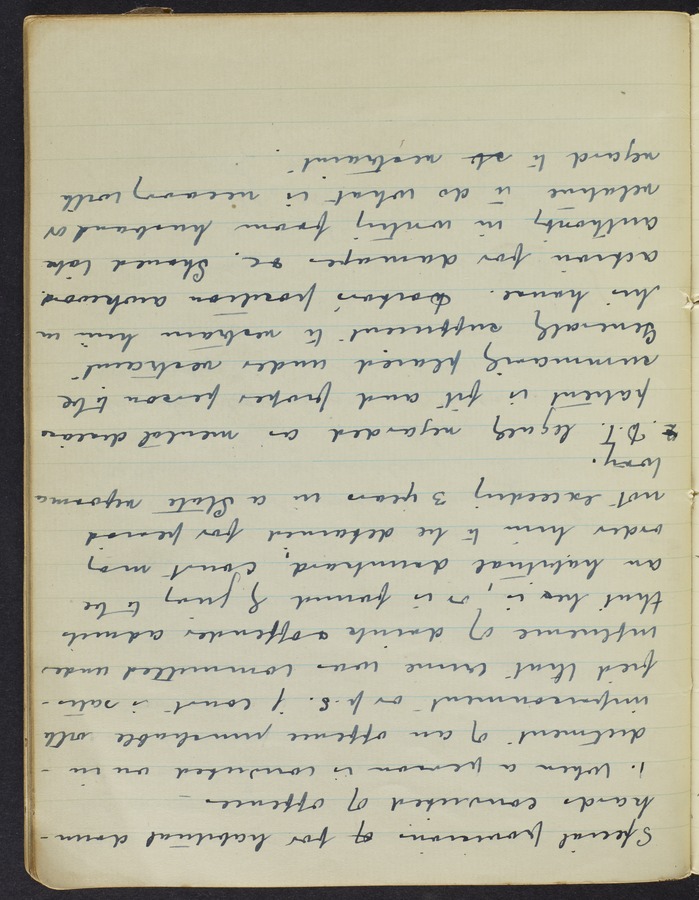 Special provisions of for habitual drun-
kards convicted of offence
1. When a person is convicted on in-
dictment of an offence punishable with
imprisonment or p.s. if court is satis-
fied that crime was committed under
influence of drink & offender admits
that he is, or is found by jury to be
an habitual drunkard, Court may
order him to be detained for period
not exceeding 3 years in a State reforma
tory.
2. D.T. legally regarded as mental disease
patient is fit and proper person to be
summarily placed under restraint
Generally sufficient to restrain him in
his house. Doctor's position awkward
action for damages &c. Should take
authority in writing from husband or
relative to do what is necessary with
regard to restraint.